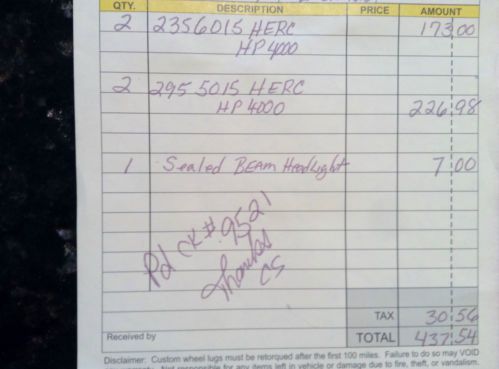 QTY. DESCRIPTION PRICE AMOUNT
2 2356015 HERC 173.00
HP 4000
2 295 5015 HERC
HP 4000 226.98
1 Sealed BEAM Headlight 7.00
Pd CK # 9521
Thanks
CS
TAX 30.56
Received by TOTAL 437.54
Disclaimer: Custom wheel lugs must be retorqued after the first 100 miles. Failure to do so may VOID
Not responsible for any items left in vehicle or damage due to fire, theft, or vandalism.